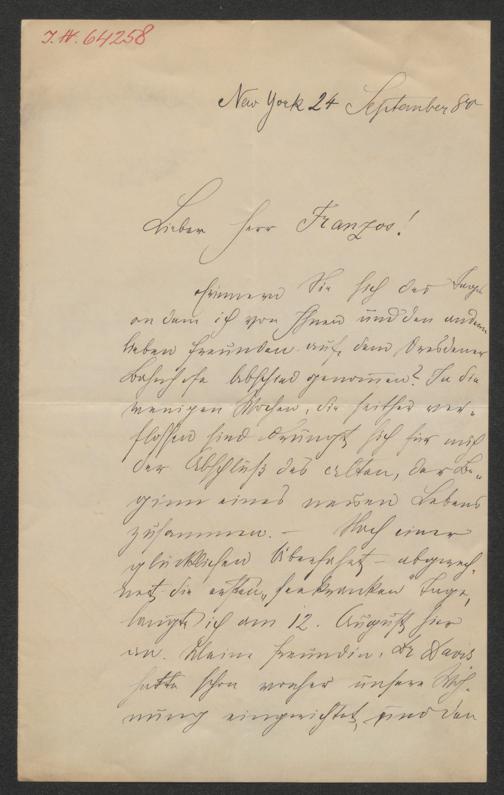 I.N. 64258
New York 24 September 80
Lieber Herr Franzos!
Erinnern Sie sich des Tages
an dem ich von Ihnen und den andern
lieben Freunden auf dem Dresdener
Bahnhofe Abschied genommen? In die
wenigen Wochen, die seither ver-
flossen sind drängt sich für mich
der Abschluß des Alten, der Be-
ginn eines neuen Lebens
zusammen. – Nach einer
glücklichen Überfahrt – abgerech-
net die ersten, seekranken Tage,
langte ich am 12. August hier
an. Meine Freundin, Dr Davis
hatte schon vorher unsere Woh-
nung eingerichtet, und den